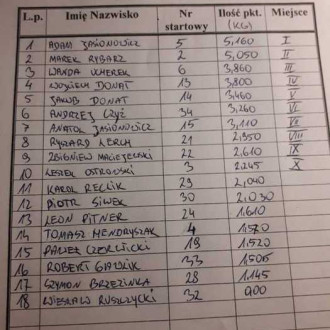 L.p. Imię Nazwisko Nr startowy Ilość pkt. (KG) Miejsce
1 ADAM JASIONOWICZ 5 5,160 I
2 MAREK RYBARZ 2 5,050 II
3 WANDA WCHEREK 6 3,860 III
4 WOJCIECH DONAT 13 3,800 IV
5 JAKUB DONAT 14 3,460 V
6 ANDRZEJ CZYŻ 34 3,260 VI
7 ANATOL JASIONOWICZ 15 3,110 VII
8 RYSZARD LERCH 21 2,950 VIII
9 ZBIGNIEW MACIEJEWSKI 22 2,610 IX
10 LESZEK OSTROWSKI 3 2.245 X
11 KAROL REGLIK 29 2,040
12 PIOTR SIWEK 30 2,030
13 LEON PITNER 24 1.610
14 TOMASZ MENDRYSZAK 4 1.570
15 PAWEŁ 19 1.520
16 ROBERT 33 1.505
17 SZYMON BRZEZINKA 28 1.145
18 WIESŁAW RUSZCZYCKI 32 900